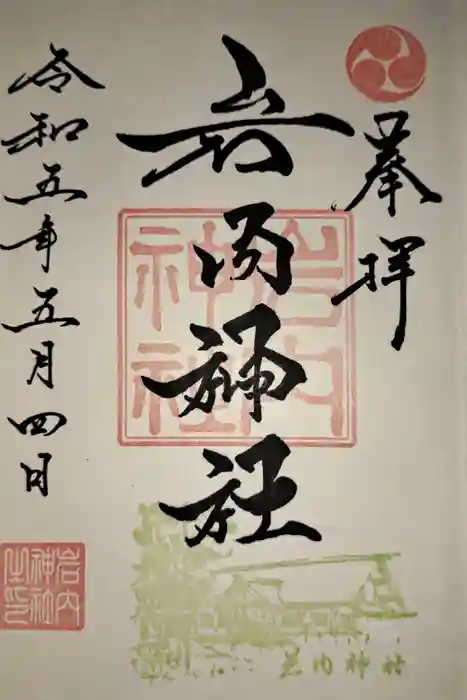 奉拝
岩内神社
岩内神社
令和五年五月四日
岩内神社之印
岩内神社